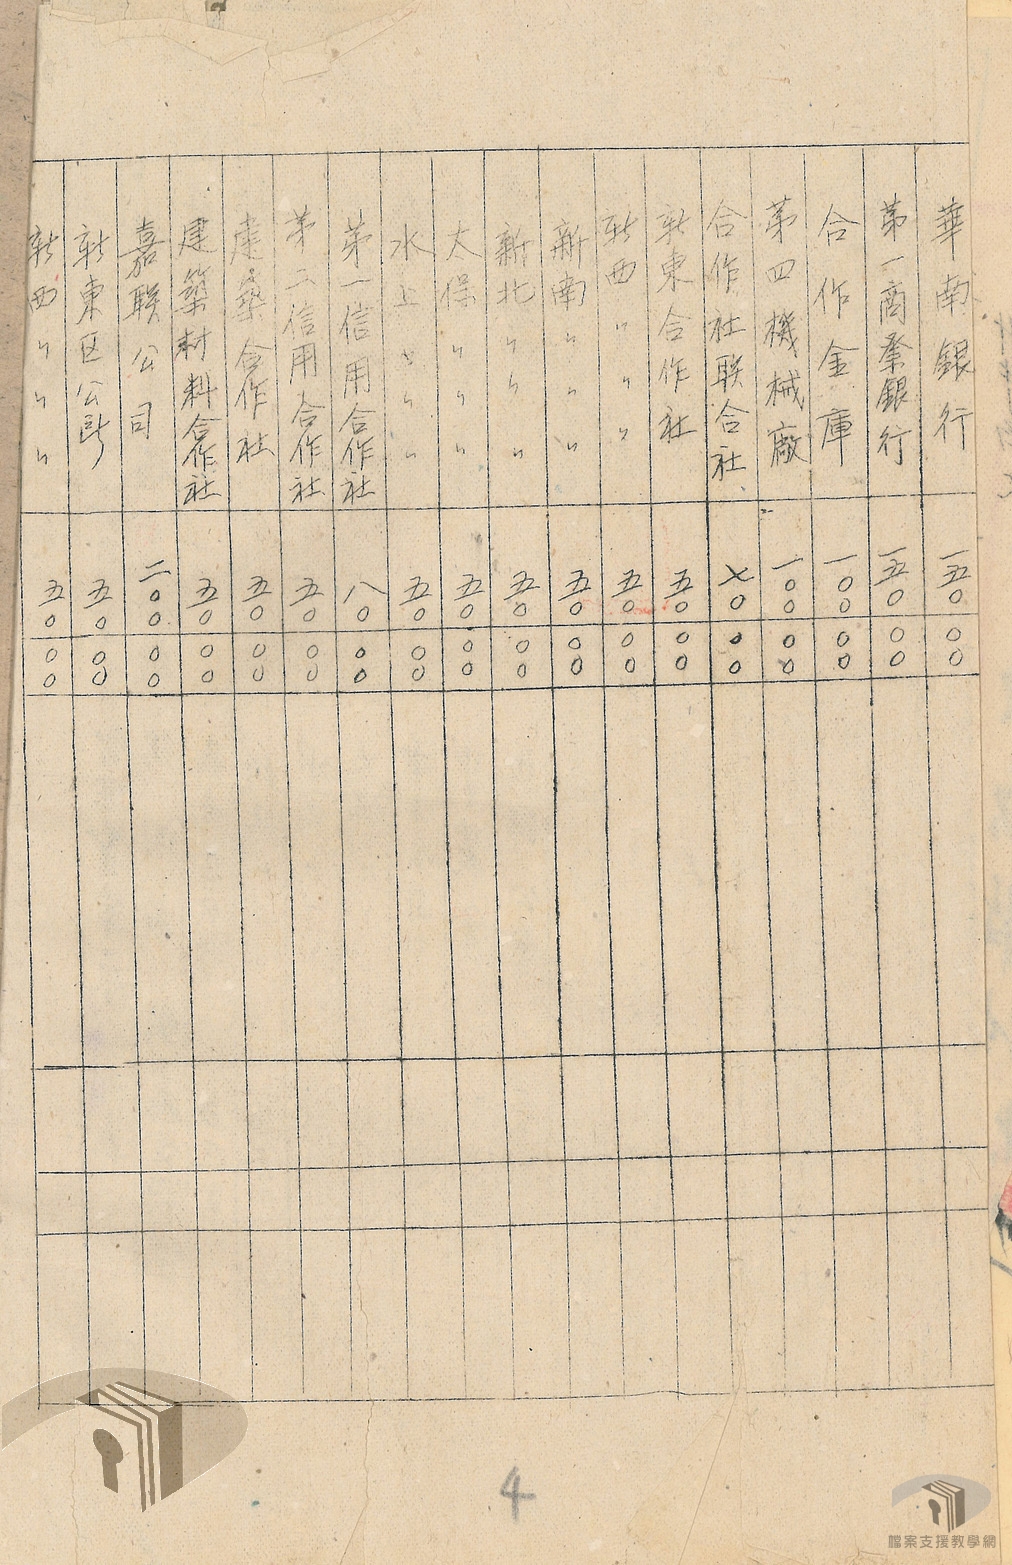 華南銀行 一五〇 〇〇
第一商業銀行 一五〇 〇〇
合作金庫 一〇〇 〇〇
第四機械廠 一〇〇 〇〇
合作社联合社、 七〇 〇〇
新東合作社 五〇 〇〇
新西〃〃〃 五〇 〇〇
新南〃〃〃 五〇 〇〇
新北〃〃〃 五〇 〇〇
太保〃〃〃 五〇 〇〇
水上〃〃〃 五〇 〇〇
第一信用合作社 八〇 〇〇
第二信用合作社 五〇 〇〇
建築合作社 五〇 〇〇
建築材料合作社 五〇 〇〇
嘉联公司 二〇〇 〇〇
新東区公所 五〇 〇〇
新西〃〃〃 五〇 〇〇
4
檔案支援教學網